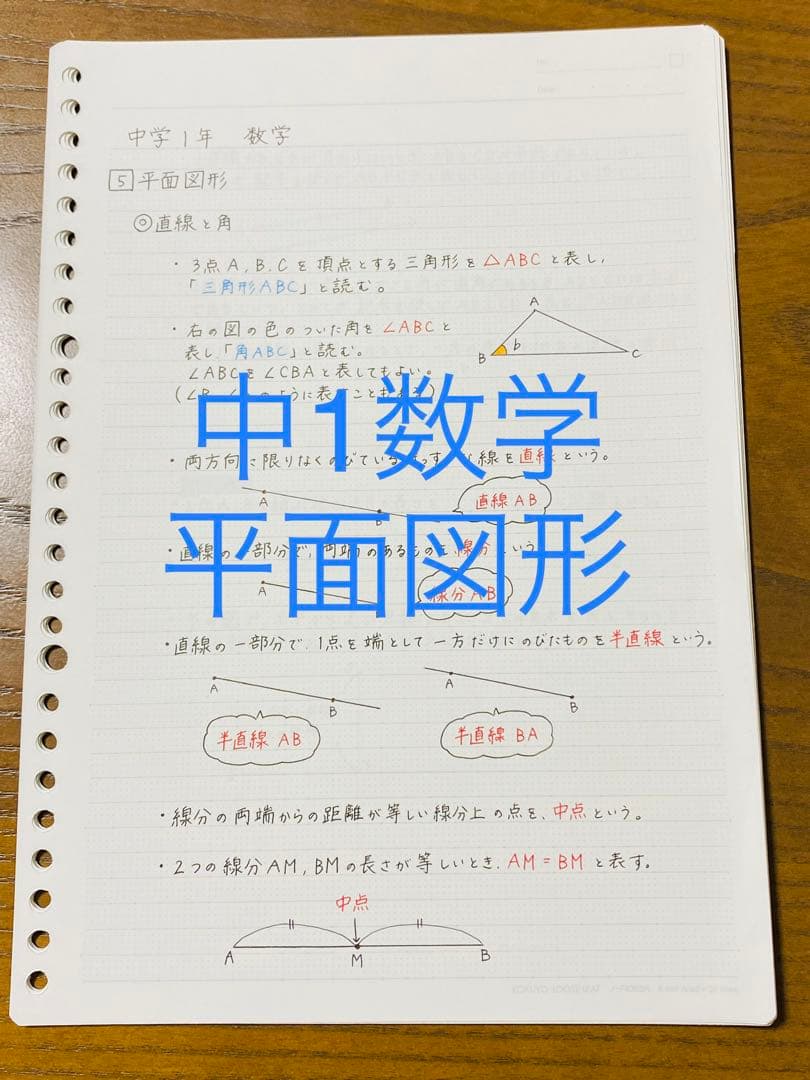 中学1年 数学
5 平面図形
◎直線と角
・3点A,B,Cを頂点とする三角形を△ABCと表し,
「三角形ABC」と読む。
・右の図の色のついた角を∠ABCと
表し「角ABC」と読む。
∠ABCを∠CBAと表してもよい。
A
B
b
C
中1数学
・両方向に限りなくのびている
線を直線という。
A
B
直線AB
平面図形
・直線の一部分で,両端のあるものを線分という
A
線分AB
・直線の一部分で,1点を端として一方だけにのびたものを半直線という。
A
B
半直線 AB
A
B
半直線 BA
・線分の両端からの距離が等しい線分上の点を、中点という。
・2つの線分AM,BMの長さが等しいとき,AM=BMと表す。
中点
A
M
B